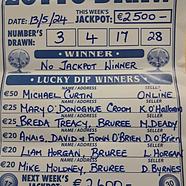 DATE: 13/5/24 THIS WEEK'S JACKPOT: €2500-
NUMBER'S DRAWN: 3 4 17 28
WINNER
NAME/ADDRESS SELLER
No JACKPOT WINNER
LUCKY DIP WINNERS
NAME/ADDRESS SELLER
€50 MICHAEL CURTIN ONLINE
NAME/ADDRESS SELLER
€25 MARY O'DONOGHUE CROOM K O'HALLORAN
NAME/ADDRESS SELLER
€25 BREDA TREACY, BRUREE M DEADY
NAME/ADDRESS SELLER
€20 ANAIS, DAVID & FIONN O'BRIEN D O'BRIEN
NAME/ADDRESS SELLER
€20 LIAM HORGAN, BRUREE L HORGAN
NAME/ADDRESS SELLER
€20 MIKE MOLONEY, BRUREE D BYRNES
NEXT WEEK'S